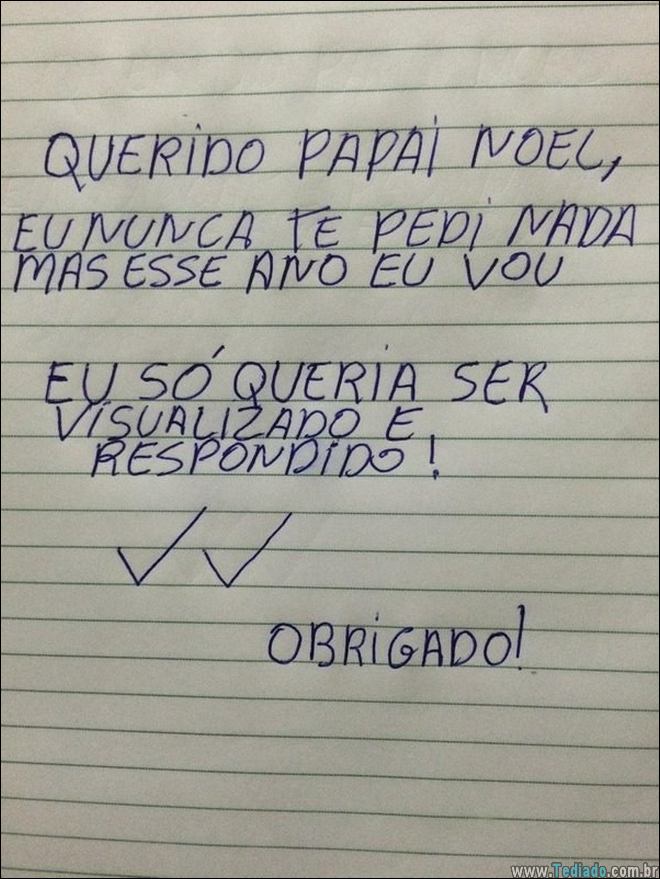 QUERIDO PAPAI NOEL,
EU NUNCA TE PEDI NADA
MAS ESSE ANO EU VOU
EU SÓ QUERIA SER
VISUALIZADO E
RESPONDIDO!
✓✓
OBRIGADO!
www.Tediado.com.br